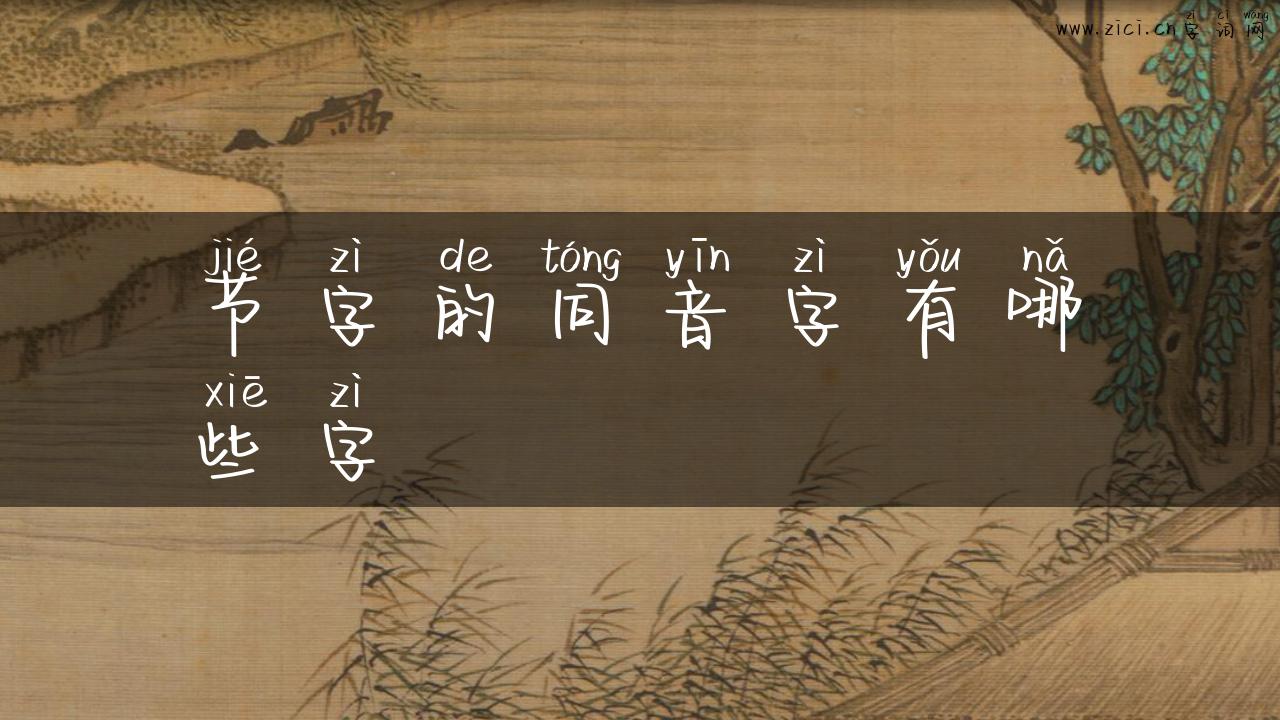 zì cí wǎng
www.zici.cn字词网
jié zì de tóng yīn zì yǒu nǎ
节字的同音字有哪
xiē zì
些字